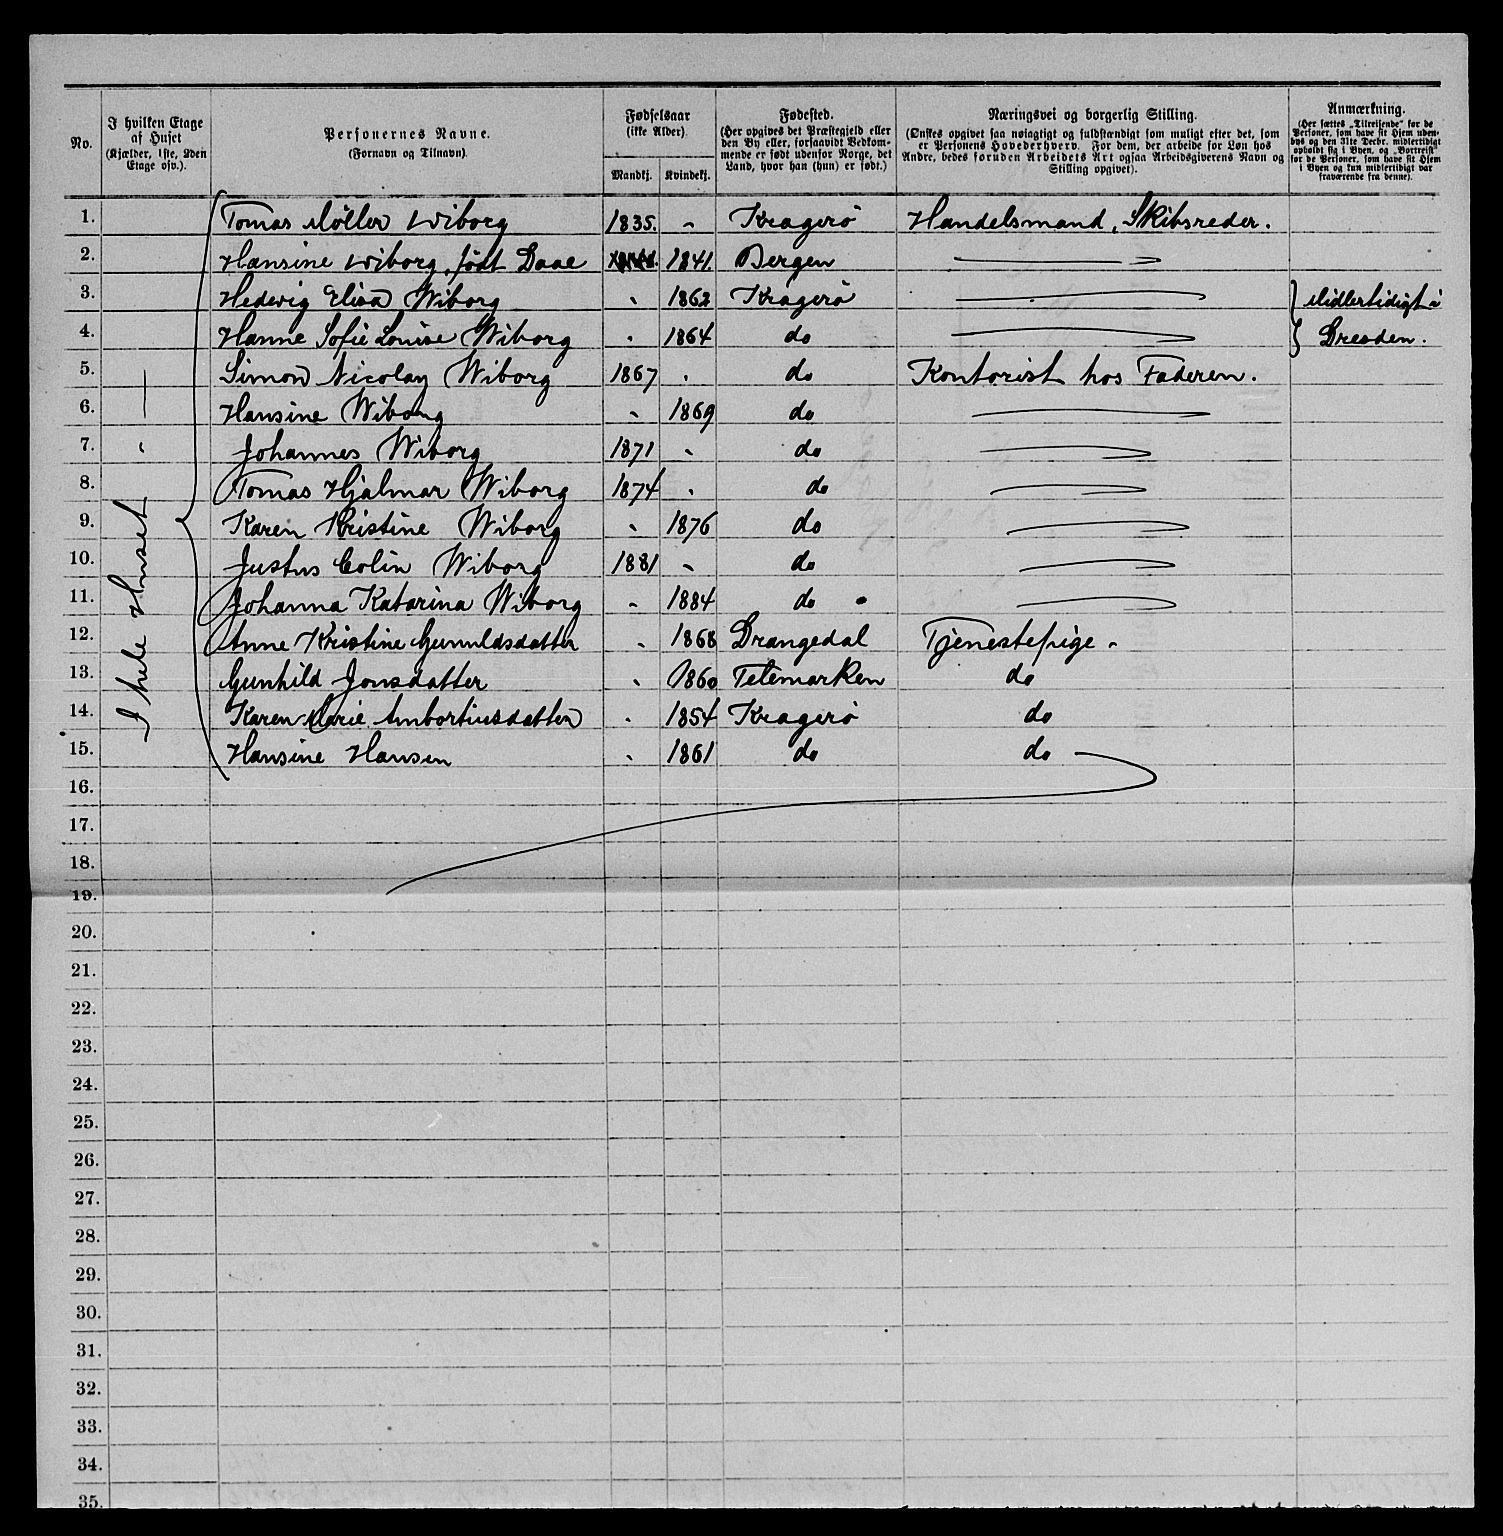 No.
I hvilken Etage af Huset
(Kjælder, 1ste, 2den Etage osv.).
Personernes Navne.
(Fornavn og Tilnavn).
Fødselsaar
(ikke Alder).
Mandkj. Kvindekj.
Fødested.
(Her opgives det Præstegjeld eller den By eller, forsaavidt Vedkommende er født udenfor Norge, det Land, hvor han (hun) er født.)
Næringsvei og borgerlig Stilling.
(Ønskes opgivet saa nøiagtigt og fuldstændigt som muligt efter det, som er Personens Hovederhverv. For dem, der arbeide for Løn hos Andre, bedes foruden Arbeidets Art ogsaa Arbeidsgiverens Navn og Stilling opgivet).
Anmærkning.
(Her sættes „Tilreisende" for de Personer, som have sit Hjem udenbys og den 31te Decbr. midlertidigt opholdt sig i Byen, og „Bortreist" for de Personer, som have sit Hjem i Byen og kun midlertidigt var fraværende fra denne).
I hele Huset
1. Tomas Møller Wiborg 1835. Kragerö Handelsmand, Skibsreder.
2. Hansine Wiborg, født Daae 1841. Bergen
3. Hedevig Elisa Wiborg 1862 Kragerö Midlertidigt i
4. Hanne Sofie Louise Wiborg 1864 do Dresden.
5. Simon Nicolay Wiborg 1867 do Kontorist hos Faderen.
6. Hansine Wiborg 1869 do
7. Johannes Wiborg 1871 do
8. Tomas Hjalmar Wiborg 1874 do
9. Karen Kristine Wiborg 1876 do
10. Justus Colin Wiborg 1881 do
11. Johanna Katarina Wiborg 1884 do
12. Anne Kristine Gunuldsdatter 1868 Drangedal Tjenestepige
13. Gunhild Jonsdatter 1860 Telemarken do
14. Karen Marie Ambortiusdatter 1854 Kragerö do
15. Hansine Hansen 1861 do do
16.
17.
18.
19.
20.
21.
22.
23.
24.
25.
26.
27.
28.
29.
30.
31.
32.
33.
34.
35.